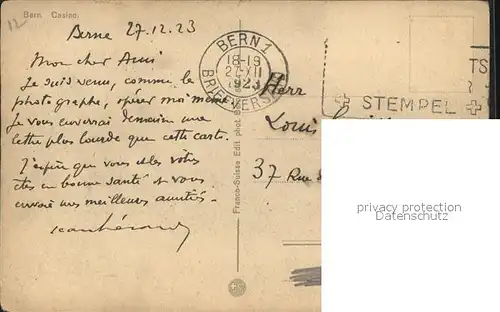 12
Bern. Casino.
Berne 27.12.23
Mon cher Ami
Je suis venu, comme le
photographe, opérer moi même
Je vous enverrai demain une
lettre plus lourde que cette carte.
J'espère que vous et les vôtres
êtes en bonne santé et vous
envoie mes meilleures amitiés.
BERN 1
18-19
27.XII
1923
BRIEFVERSAND
STEMPEL
TS
Franco-Suisse Edit. phot. B
Herr
Louis
37 Rue
privacy protection
Datenschutz